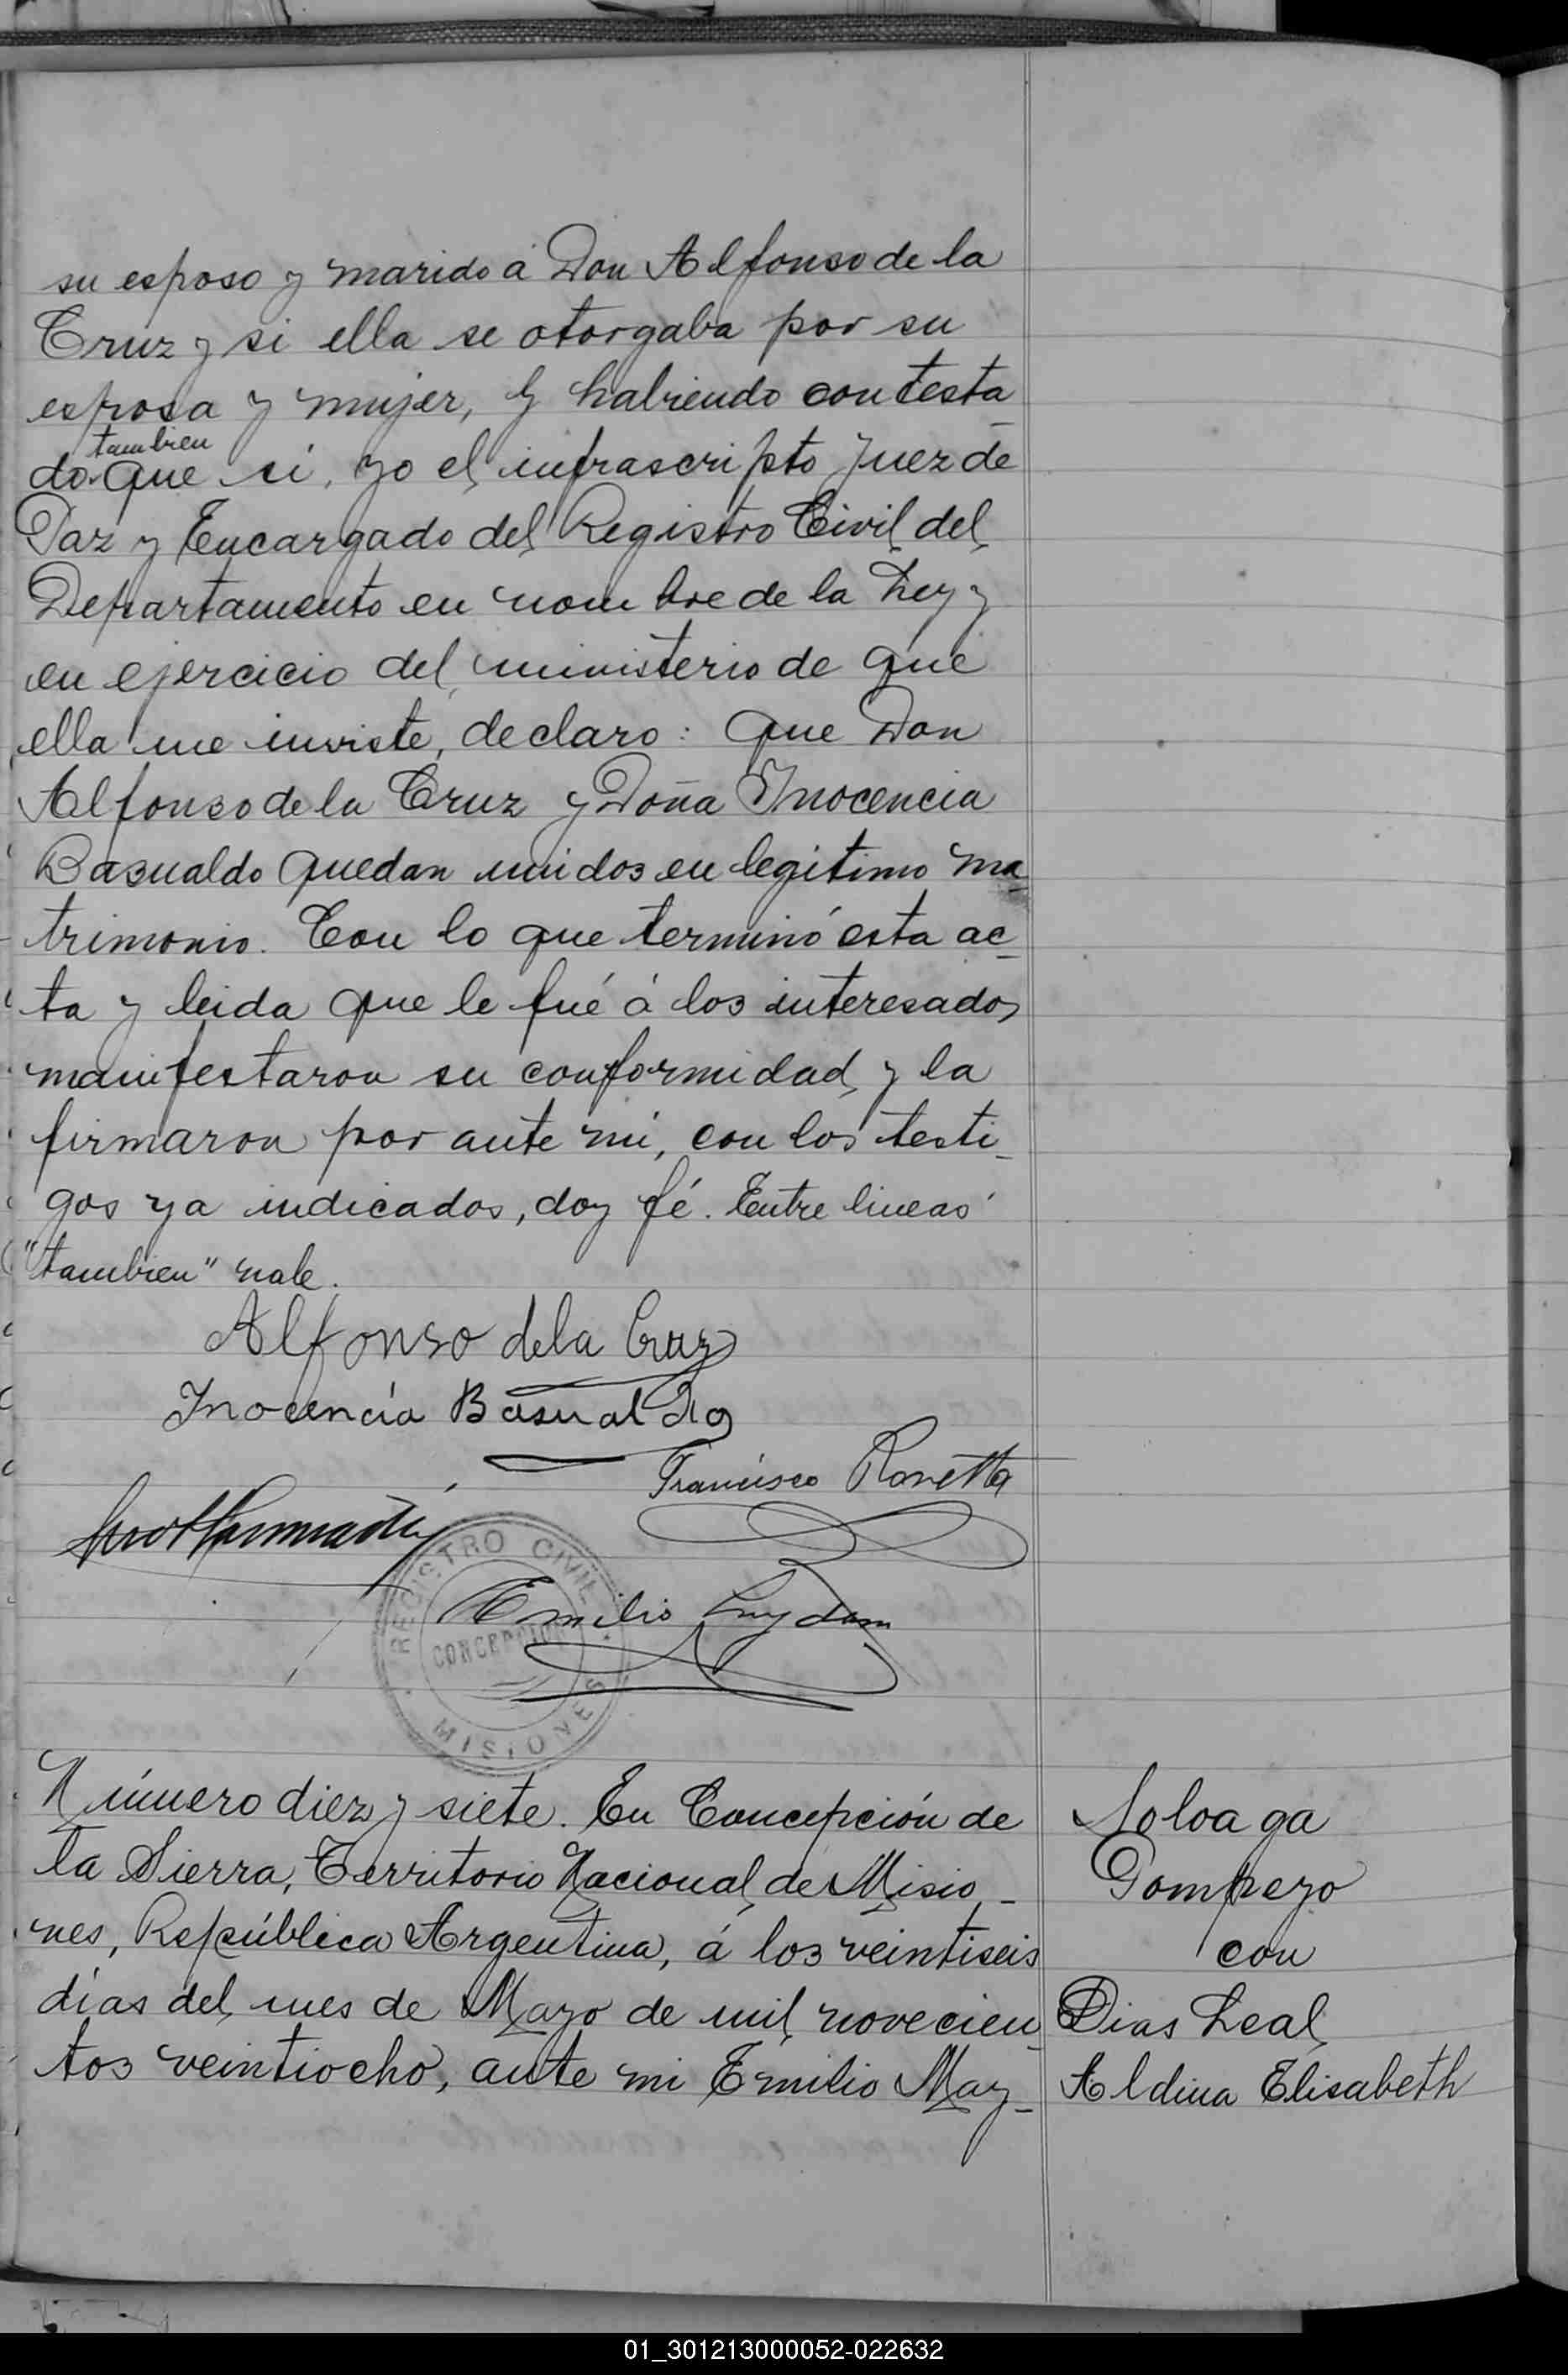 su esposo y marido á Don Alfonso de la
Cruz y si ella se otorgaba por su
esposa y mujer, y habiendo contesta
tambien
do que si, yo el infrascripto Juez de
Paz y Encargado del Registro Civil del
Departamento en nombre de la Ley y
en ejercicio del ministerio de que
ella me inviste, declaro: que Don
Alfonso de la Cruz y Doña Inocencia
Basualdo quedan unidos en legítimo ma_
trimonio. Con lo que terminó esta ac_
ta y leida que le fué á los interesados
manifestaron su conformidad y la
firmaron por ante mi, con los testi_
gos ya indicados, doy fé. Entre lineas
"tambien" vale.
Alfonso de la Cruz
Inocencia Basualdo
Francisco
REGISTRO CIVIL
Emilio
CONCEPCION
MISIONES
Número diez y siete. En Concepción de
la Sierra, Territorio Nacional de Misio_
nes, República Argentina, á los veintiseis
días del mes de Mayo de mil novecien_
tos veintiocho, ante mi Emilio May_
Soloaga
Pompeyo
con
Dias Leal
Aldina Elisabeth
01_301213000052-022632